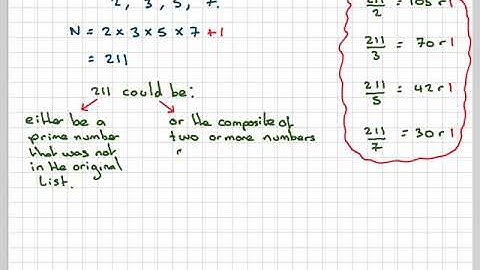 2, 3, 5, 7.
N = 2 × 3 × 5 × 7 + 1
= 211
211 could be:
either be a
prime number
that was not
in the original
list.
or the composite of
two or more numbers
211/2 = 105 r 1
211/3 = 70 r 1
211/5 = 42 r 1
211/7 = 30 r 1